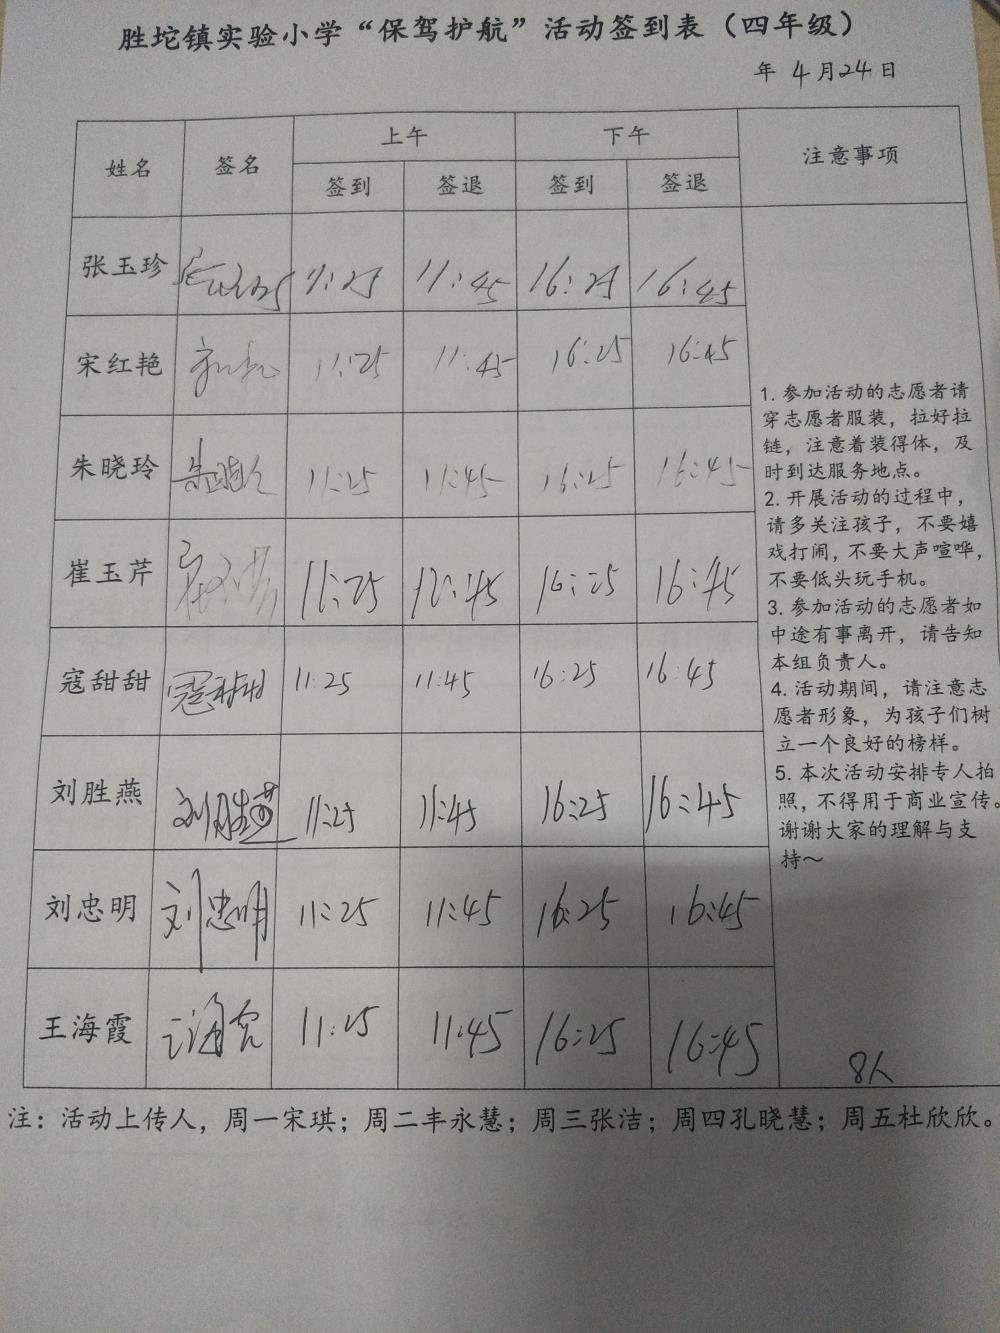 胜坨镇实验小学“保驾护航”活动签到表（四年级）
年 4月24日
姓名 签名 上午 下午 注意事项
签到 签退 签到 签退
张玉珍 11:25 11:45 16:25 16:45
宋红艳 宋红艳 11:25 11:45 16:25 16:45
朱晓玲 朱晓玲 11:25 11:45 16:25 16:45
崔玉芹 11:25 12:45 16:25 16:45
寇甜甜 寇甜甜 11:25 11:45 16:25 16:45
刘胜燕 刘胜燕 11:25 11:45 16:25 16:45
刘忠明 刘忠明 11:25 11:45 16:25 16:45
王海霞 王海霞 11:25 11:45 16:25 16:45
1. 参加活动的志愿者请
穿志愿者服装，拉好拉
链，注意着装得体，及
时到达服务地点。
2. 开展活动的过程中，
请多关注孩子，不要嬉
戏打闹，不要大声喧哗，
不要低头玩手机。
3. 参加活动的志愿者如
中途有事离开，请告知
本组负责人。
4. 活动期间，请注意志
愿者形象，为孩子们树
立一个良好的榜样。
5. 本次活动安排专人拍
照，不得用于商业宣传。
谢谢大家的理解与支
持～
8人
注：活动上传人，周一宋琪；周二丰永慧；周三张洁；周四孔晓慧；周五杜欣欣。